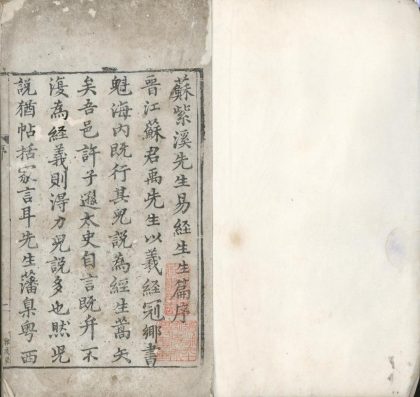 蘇紫溪先生易經生生篇序
晉江蘇君禹先生以羲經冠鄉書
魁海內既行其兒說為經生蒿矢
矣吾邑許子遜太史自言既弁不
復為經義則得力兒說多也然兒
說猶帖括家言耳先生藩臬粵西
序
一